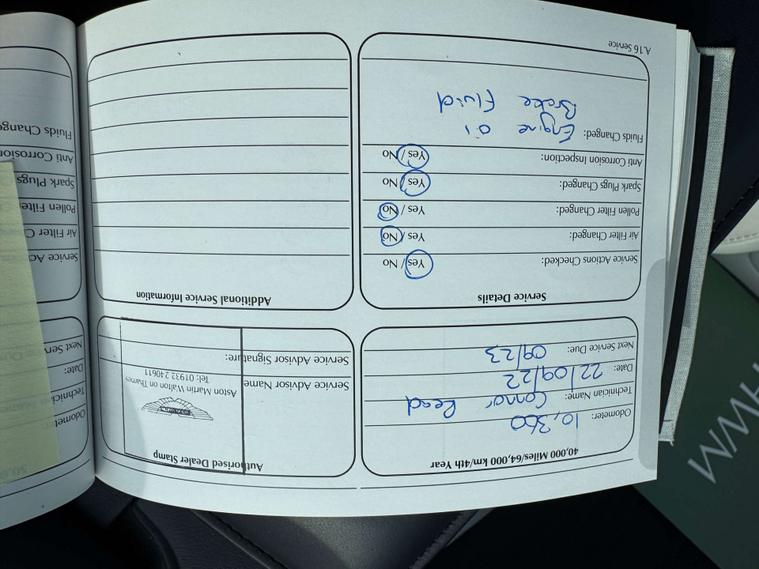 A.16 Service
40,000 Miles/64,000 km/4th Year
Odometer: 10,360
Technician Name: Connor Read
Date: 22/09/22
Next Service Due: 09/23
Authorised Dealer Stamp
Aston Martin Walton on Thames
Tel: 01932 240611
Service Advisor Name
Service Advisor Signature:
Service Details
Service Actions Checked: Yes / No
Air Filter Changed: Yes / No
Pollen Filter Changed: Yes / No
Spark Plugs Changed: Yes / No
Anti Corrosion Inspection: Yes / No
Fluids Changed: Engine oil
Brake Fluid
Additional Service Information
50,0
Odomet
Technici
Date:
Next Serv
Service Ac
Air Filter C
Pollen Filter
Spark Plugs
Anti Corrosio
Fluids Change
HWM